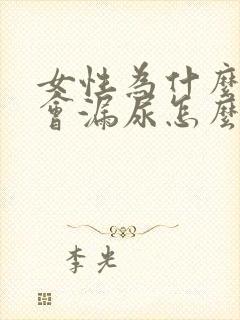 女性為什麼
會漏尿怎麼
李光